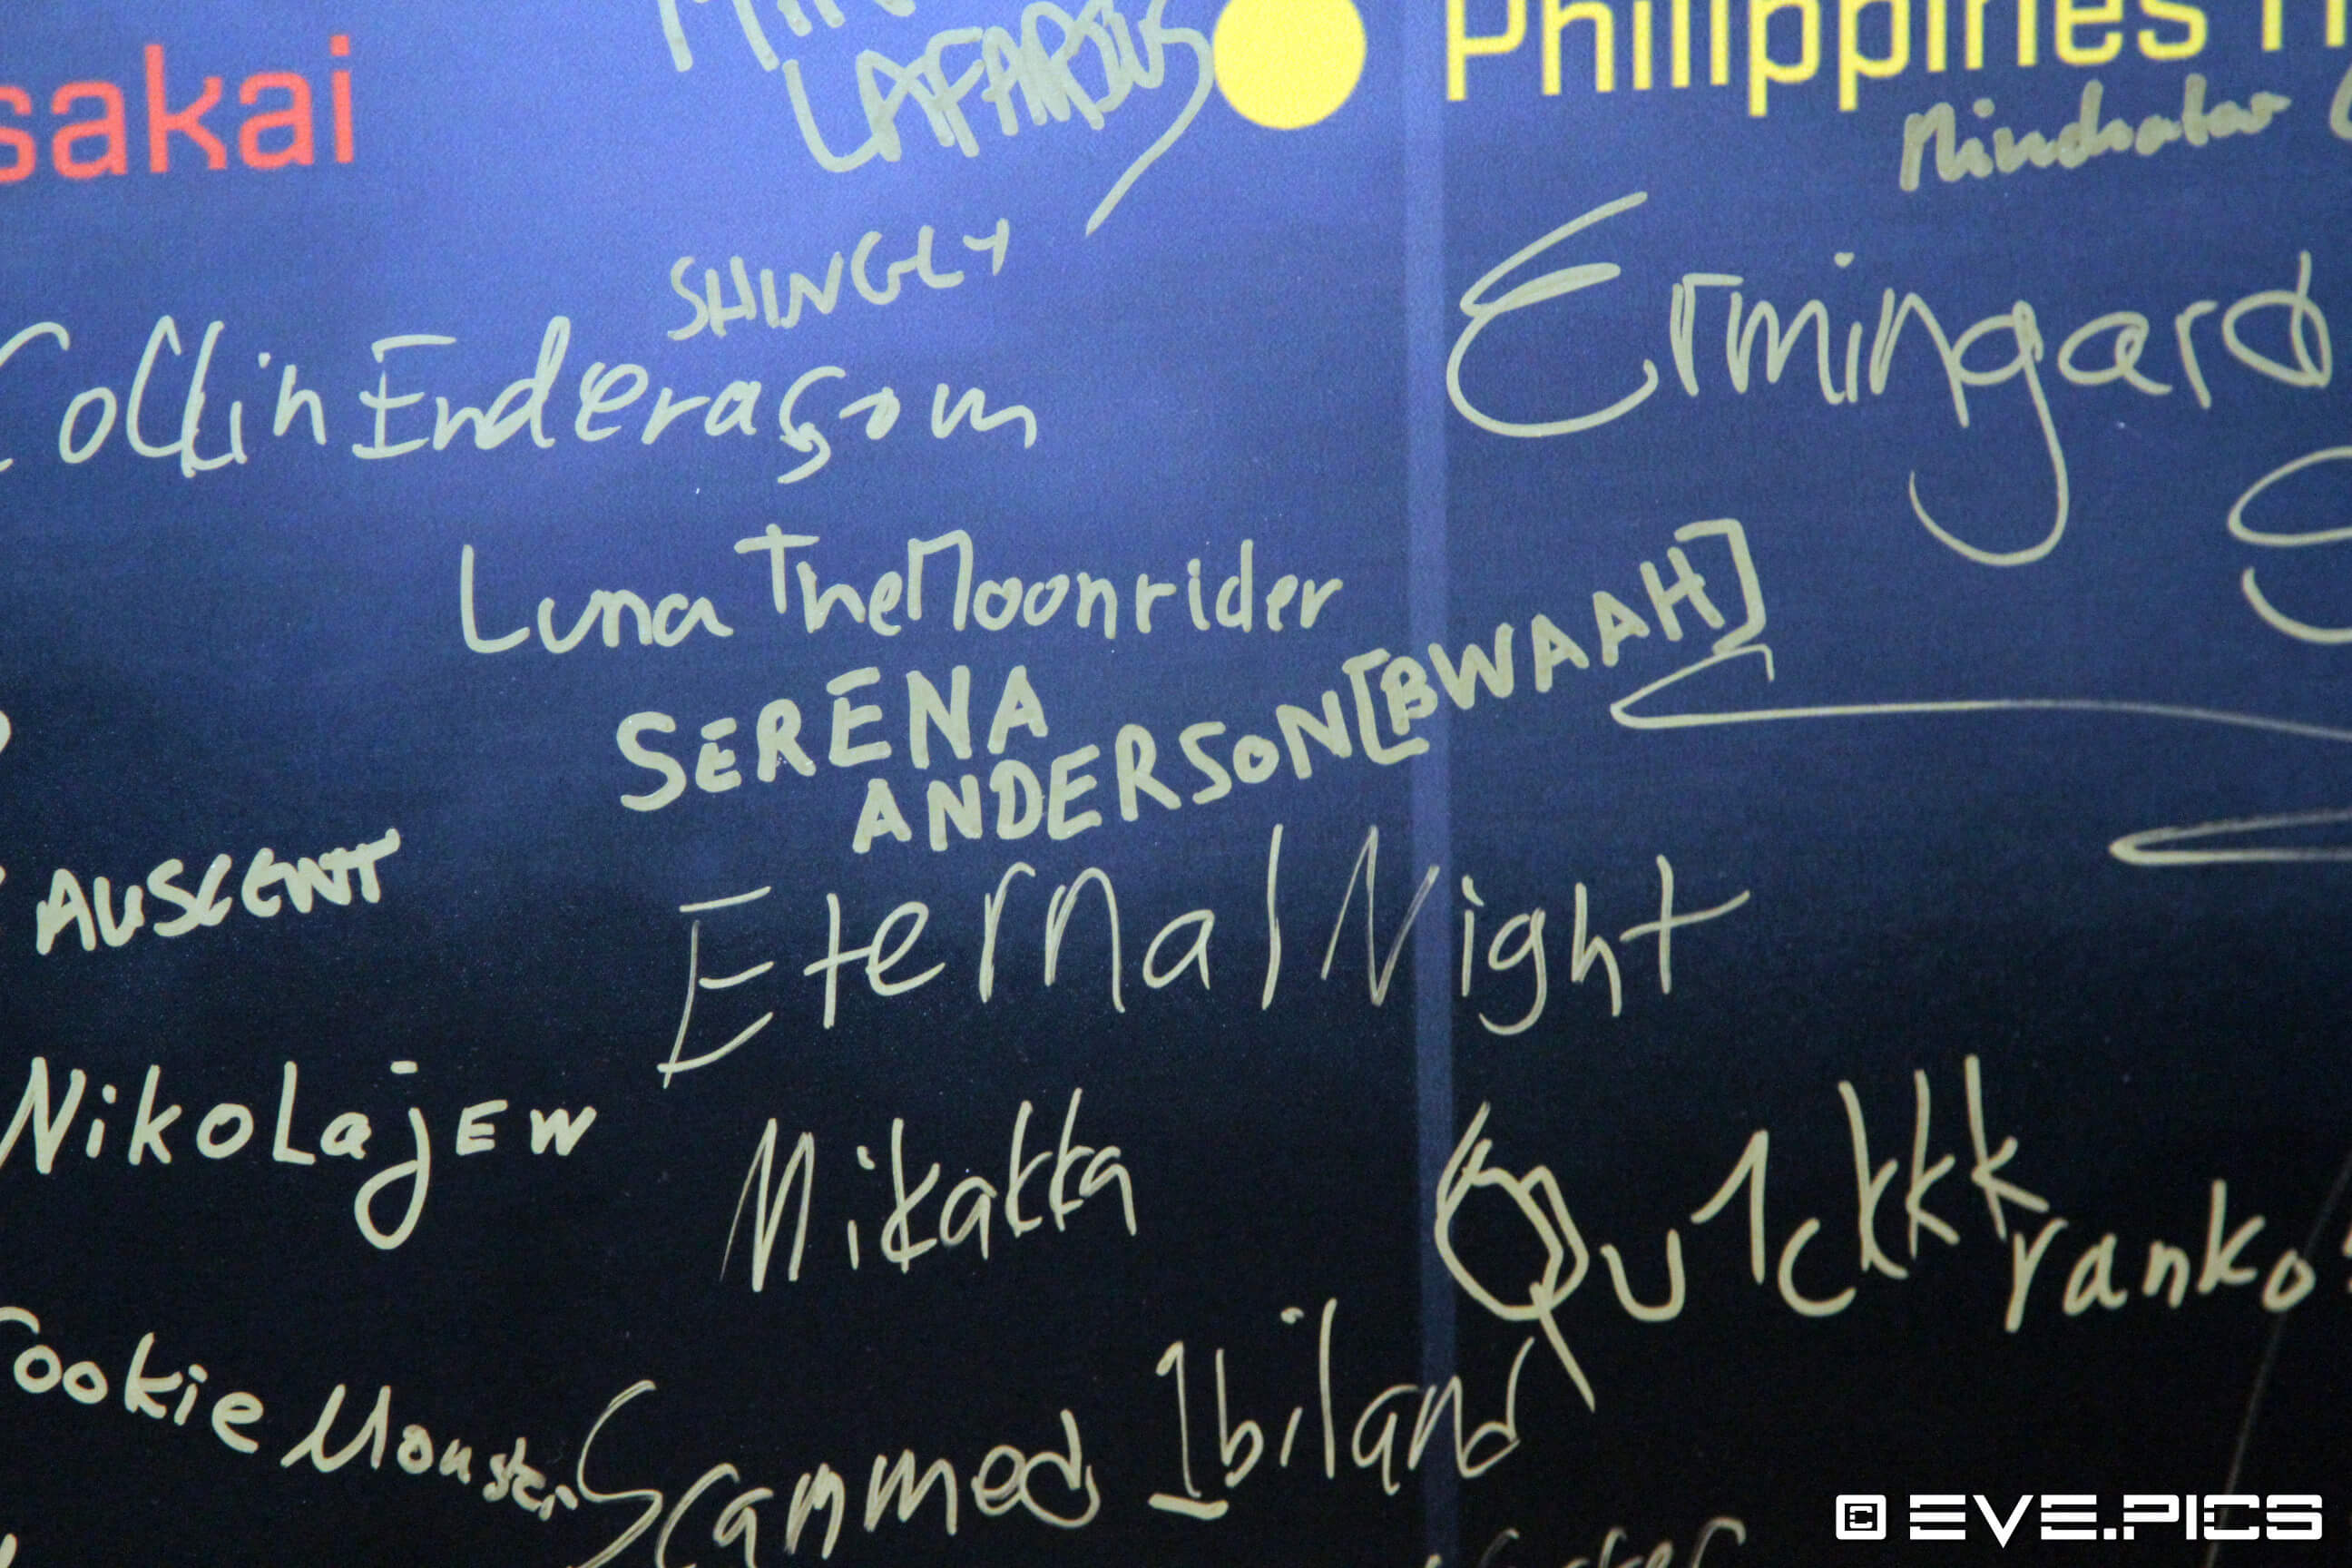 sakai
Philippines
LAFARJUS
SHINGLY
Collin Enderagom
Ermingard
Luna TheMoonrider
SERENA
ANDERSON [BWAAH]
AUSCENT
Eternal Night
NikoLajEW
Mikakka
Qu1ckkk
ranko
Cookie Monster
Scammed Ibiland
© EVE.PICS